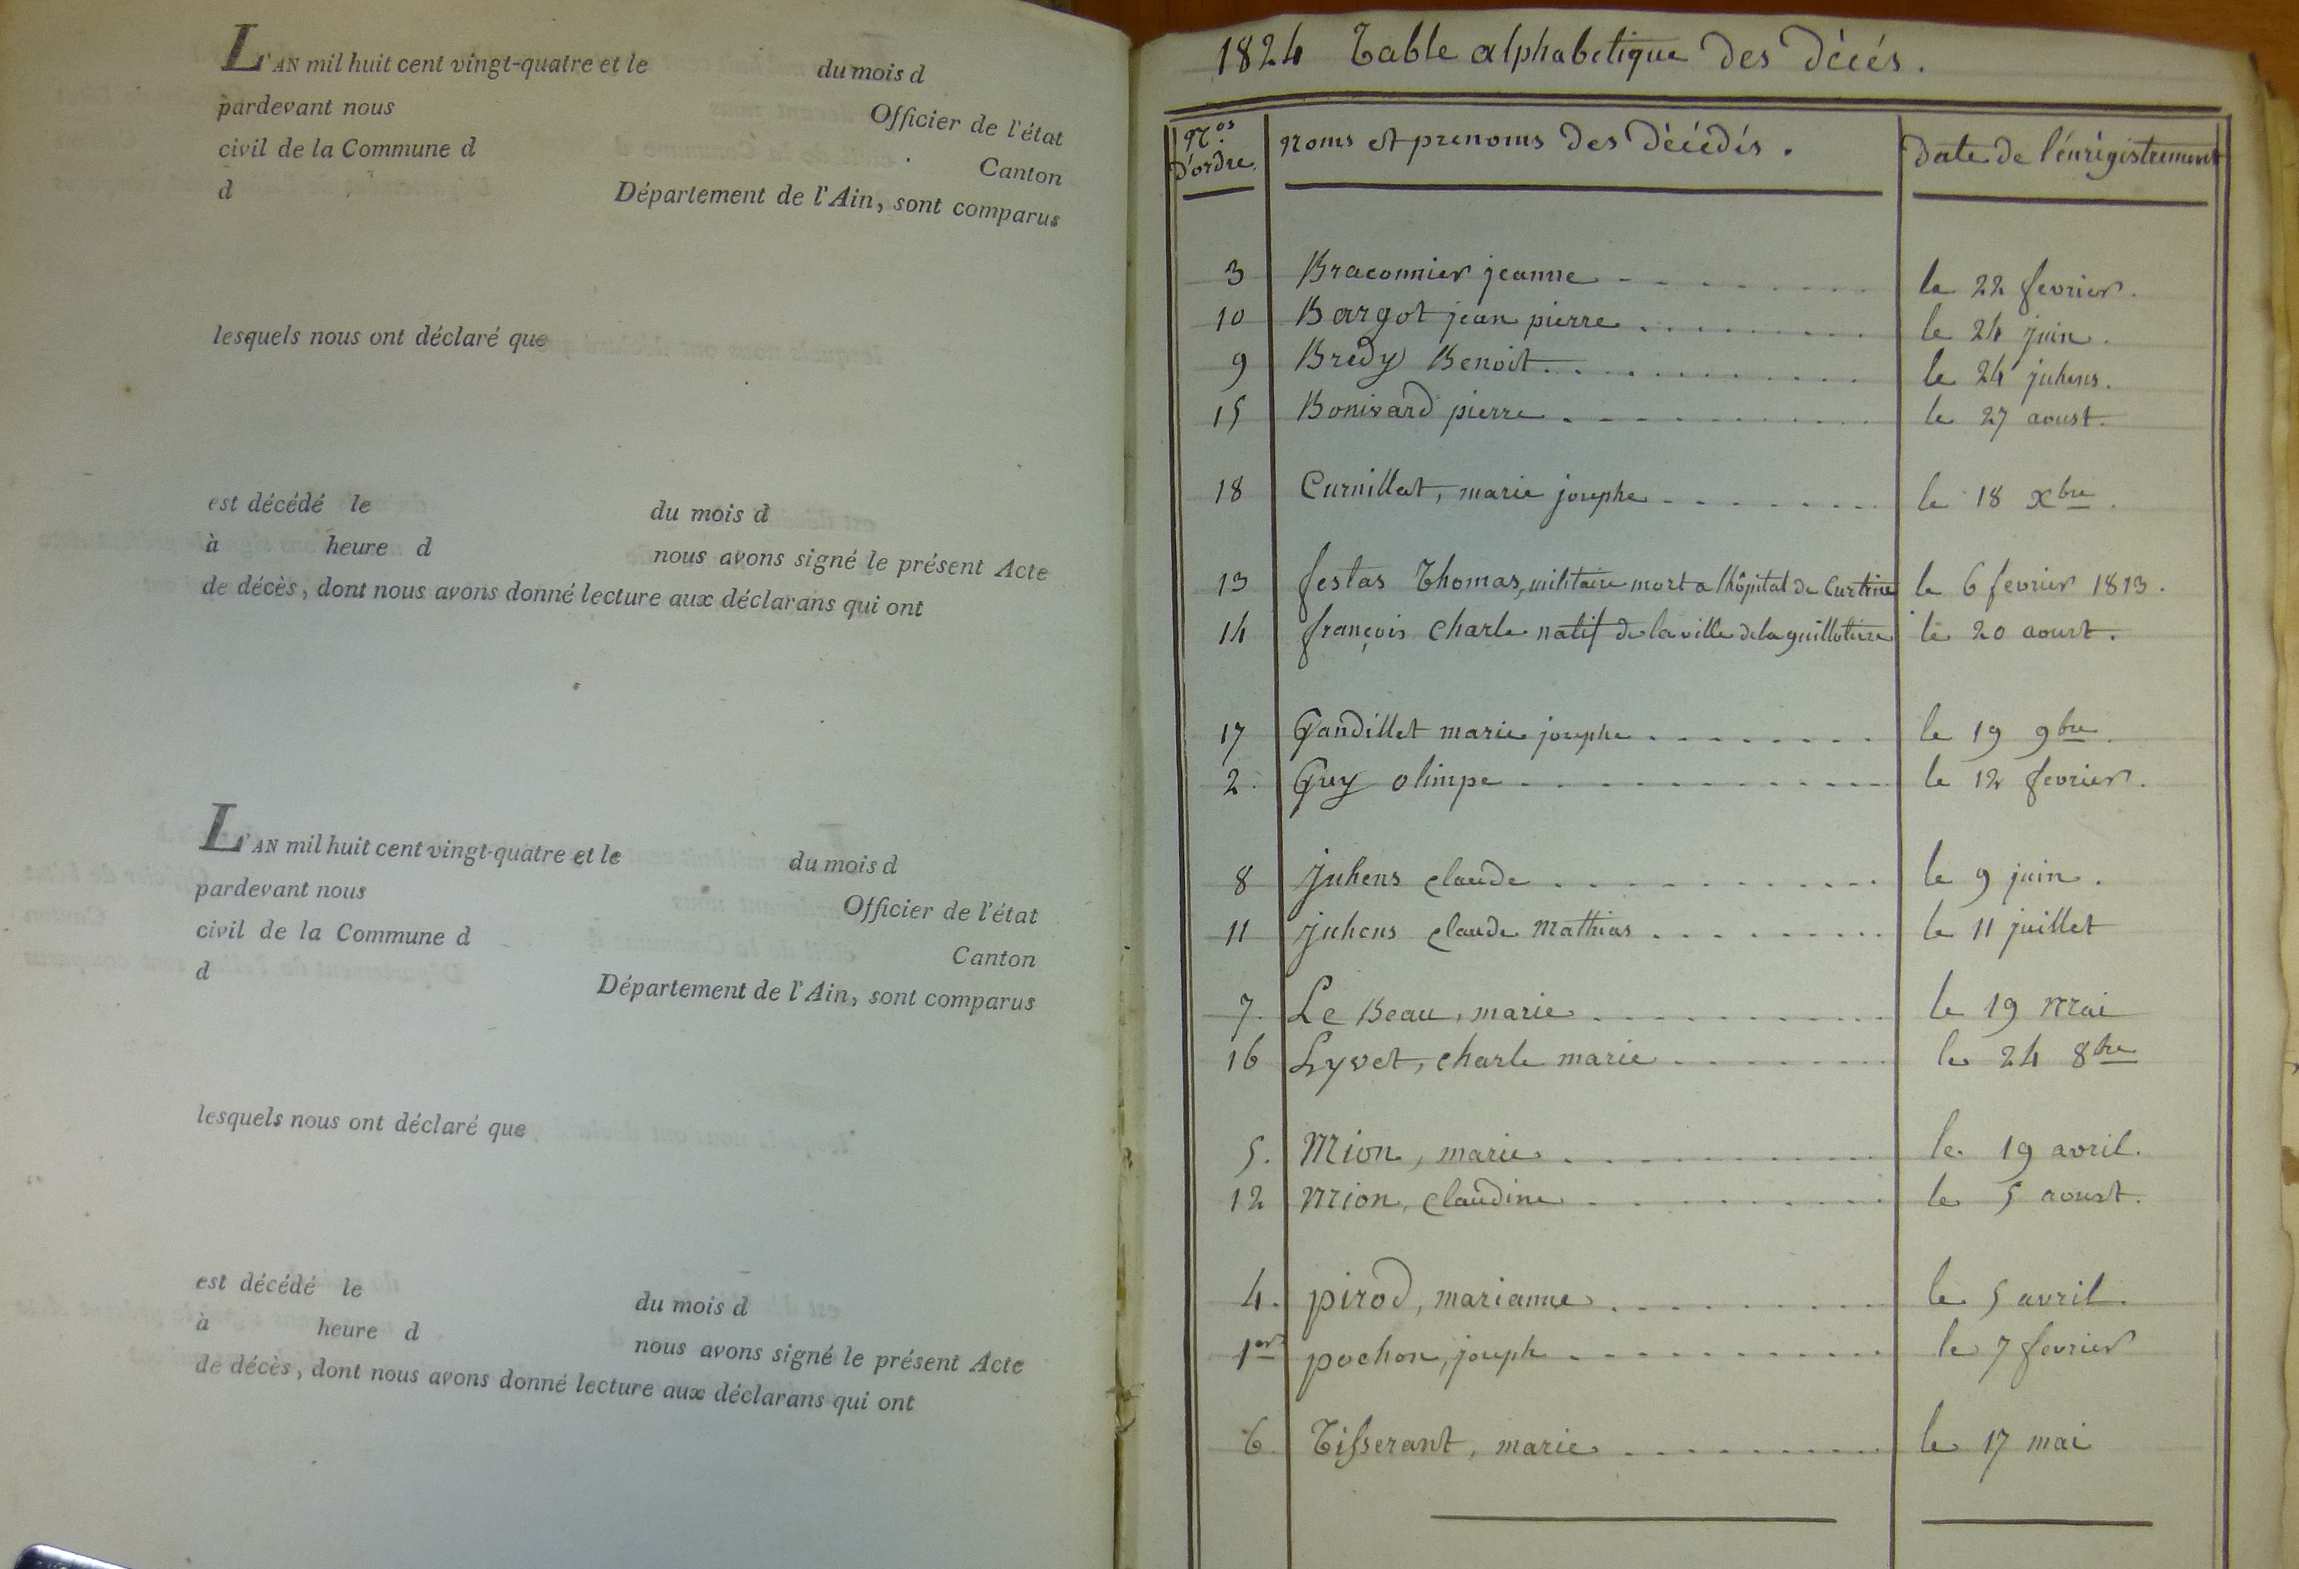 L'AN mil huit cent vingt-quatre et le du mois d
pardevant nous Officier de l'état
civil de la Commune d Canton
d Département de l'Ain, sont comparus
lesquels nous ont déclaré que
est décédé le du mois d
à heure d nous avons signé le présent Acte
de décès, dont nous avons donné lecture aux déclarans qui ont
L'AN mil huit cent vingt-quatre et le du mois d
pardevant nous Officier de l'état
civil de la Commune d Canton
d Département de l'Ain, sont comparus
lesquels nous ont déclaré que
est décédé le du mois d
à heure d nous avons signé le présent Acte
de décès, dont nous avons donné lecture aux déclarans qui ont
1824 Table alphabetique des décés.
Nos d'ordre. noms et prenoms des décédés. date de l'enrégistrement
3 Braconnier jeanne le 22 fevrier.
10 Bargot jean pierre le 24 juin.
9 Bredy Benoit le 24 juhens.
15 Bonivard pierre le 27 aoust.
18 Curnillat, marie josephe le 18 xbre.
13 festas Thomas, militaire mort a lhôpital de Custrine le 6 fevrier 1813.
14 françois charle natif de la ville de la guillotiere le 20 aoust.
17 Gandillet marie josephe le 19 9bre.
2. Guy olimpe le 12 fevrier.
8 juhens claude le 9 juin.
11 juhens claude Mathias le 11 juillet
7. Le Beau, marie le 19 Mai
16 Lyvet, charle marie le 24 8bre
5. Mion, marie le 19 avril.
12 Mion, claudine le 5 aoust.
4. pirod, marianne le 5 avril.
1er pochon, joseph le 7 fevrier
6. Tisserant, marie le 17 mai